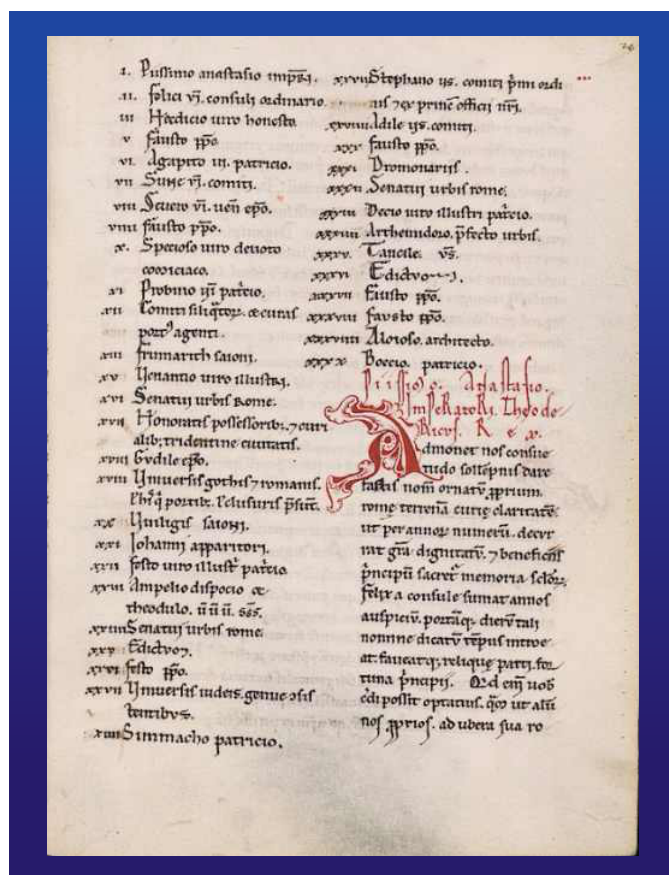 i. Piissimo anastasio imp̅ri.
.ii. felici vi̅. consuli ordinario.
iii Hedicio uiro honesto
v fausto p̅p̅o.
vi. Agapito ill. patricio.
vii Sune vi̅. comiti.
viii Seuero vi̅. uen̅ ep̅o.
viiii fausto p̅p̅o.
x. Specioso uiro deuoto
comiciaco.
xi Probino patricio.
xii Comiti siliq̅tor. & curas
port⁹ agenti.
xiii frumarith saioni.
xv Uenantio uiro illustri.
xvi Senatui urbis Rome.
xvii Honoratis possessorib; ⁊ curi
alib; tridentine ciuitatis.
xviii Eudile ep̅o.
xviiii Uniuersis gothis ⁊ romanis.
portib; clusuris p̅sunt.
xx Uuiligis saioni.
xxi Iohanni apparitori.
xxii festo uiro illustr̅ patricio.
xxiii Ampelio dispocio &
theodulo. u̅ u̅ u̅. s̅s̅.
xxiiii Senatui urbis rome.
xxv Edictum.
xxvi festo p̅p̅o.
xxvii Uniuersis iudeis. genue
tentibus.
Simmacho patricio.
xxviii Stephano comiti p̅mi ordi
nis ⁊ ex prin̅c officii nr̅i.
Adile comiti.
xxx fausto p̅p̅o.
xxxi Dromonariis.
xxxii Senatui urbis rome.
xxxiii Decio uiro illustri patricio.
xxxiiii Arthemidoro. p̅fecto urbis.
xxxv. Tancile. vs̅.
xxxvi Edictum.
xxxvii fausto p̅p̅o.
xxxviii fausto p̅p̅o.
xxxviiii Aloioso. architecto.
xxxx Boecio. patricio.
Piissimo. Anastasio.
ImpeRatoRi. Theode
Ricus. R e x.
Admonet nos consue
tudo sollepnis dare
fastis nom̅ ornatu̅ p̅prium.
rome terrena̅ curie claritate̅
ut per annor numeru̅. decur
rat gr̅a dignitatu̅. ⁊ beneficiis
p̅ncipu̅ sacret memoria sc̅lor.
felix a consule sumat annos
auspiciu̅. portāq; dieru̅ tali
nomine dicatu̅ te̅pus introe
at. faueatq; relique parti. for
tuna p̅ncipii. Q̅d eni̅ uob
c̅di possit optatius. q̅m ut alu̅
nos p̅prios. ad ubera sua ro